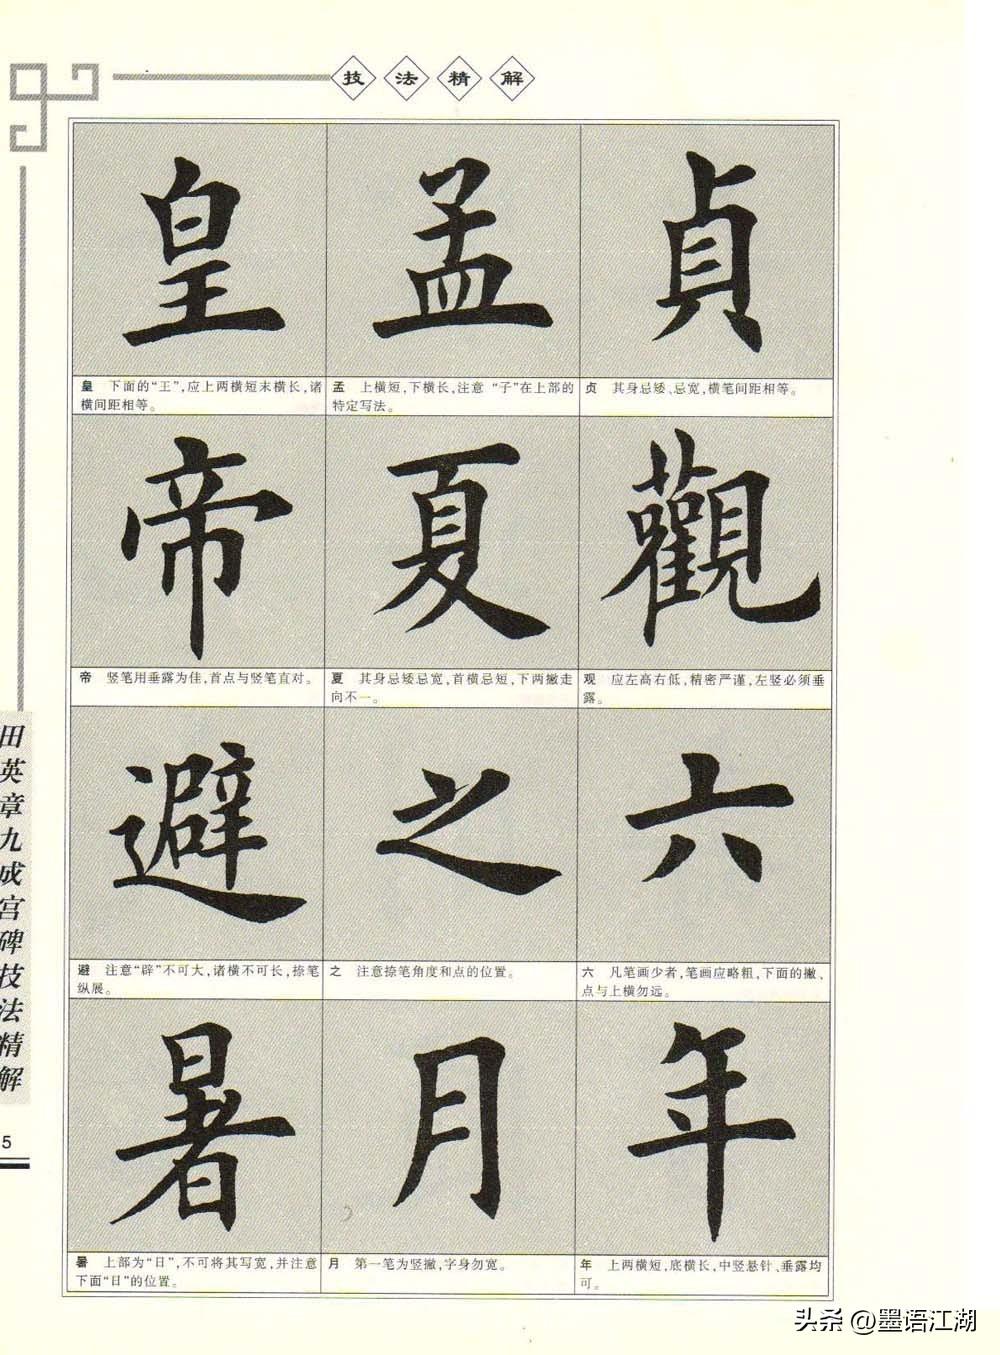 技法精解
皇
孟
貞
皇 下面的“王”,应上两横短末横长,诸
横间距相等。
孟 上横短,下横长,注意“子”在上部的
特定写法。
贞 其身忌矮、忌宽,横笔间距相等。
帝
夏
觀
帝 竖笔用垂露为佳,首点与竖笔直对。
夏 其身忌矮忌宽,首横忌短,下两撇走
向不一。
观 应左高右低,精密严谨,左竖必须垂
露。
避
之
六
避 注意“辟”不可大,诸横不可长,捺笔
纵展。
之 注意捺笔角度和点的位置。
六 凡笔画少者,笔画应略粗,下面的撇、
点与上横勿远。
暑
月
年
暑 上部为“日”,不可将其写宽,并注意
下面“日”的位置。
月 第一笔为竖撇,字身勿宽。
年 上两横短,底横长,中竖悬针、垂露均
可。
田英章九成宫碑技法精解
5
头条 @墨语江湖